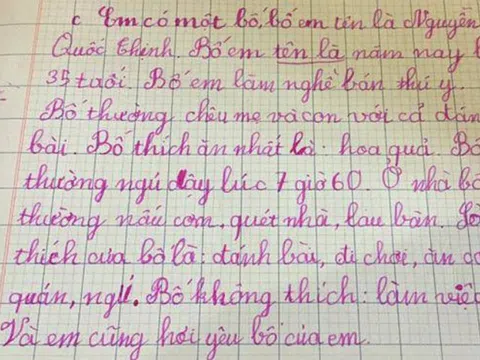 c Em có một bố, bố em tên là Nguyễn
Quốc Thịnh. Bố em tên là năm nay
35 tuổi. Bố em làm nghề bán thú y.
Bố thường chêu mẹ và con với cả đán
bài. Bố thích ăn nhất là: hoa quả. Bố
thường ngủ dậy lúc 7 giờ 60. Ở nhà bố
thường nấu cơm, quét nhà, lau bàn. Sở
thích của bố là: đánh bài, đi chơi, ăn
quán, ngủ. Bố không thích: làm việ
Và em cũng hơi yêu bố của em.